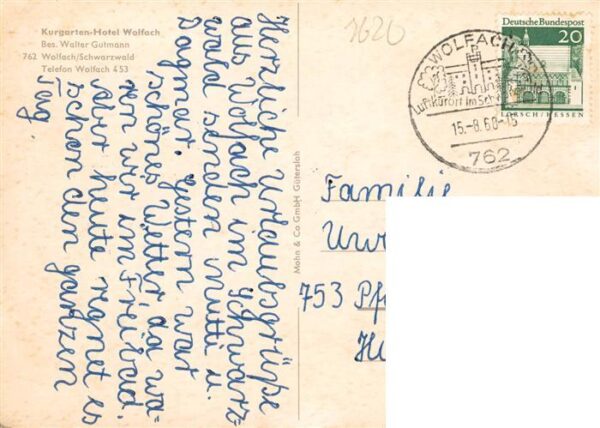 Kurgarten-Hotel Wolfach
Bes. Walter Gutmann
762 Wolfach/Schwarzwald
Telefon Wolfach 453
Herzliche Urlaubsgrüße
aus Wolfach im Schwarz-
wald senden Mutti u.
Dagmar. Gestern war
schönes Wetter, da wa-
ren wir im Freibad
aber heute regnet es
schon den ganzen
Tag.
Mohn & Co GmbH Gütersloh
1620
WOLFACH
Luftkurort im Schwarzwald
15.-8.68-15
762
Deutsche Bundespost
20
LORSCH/HESSEN
Familie
Uw
753 Pf